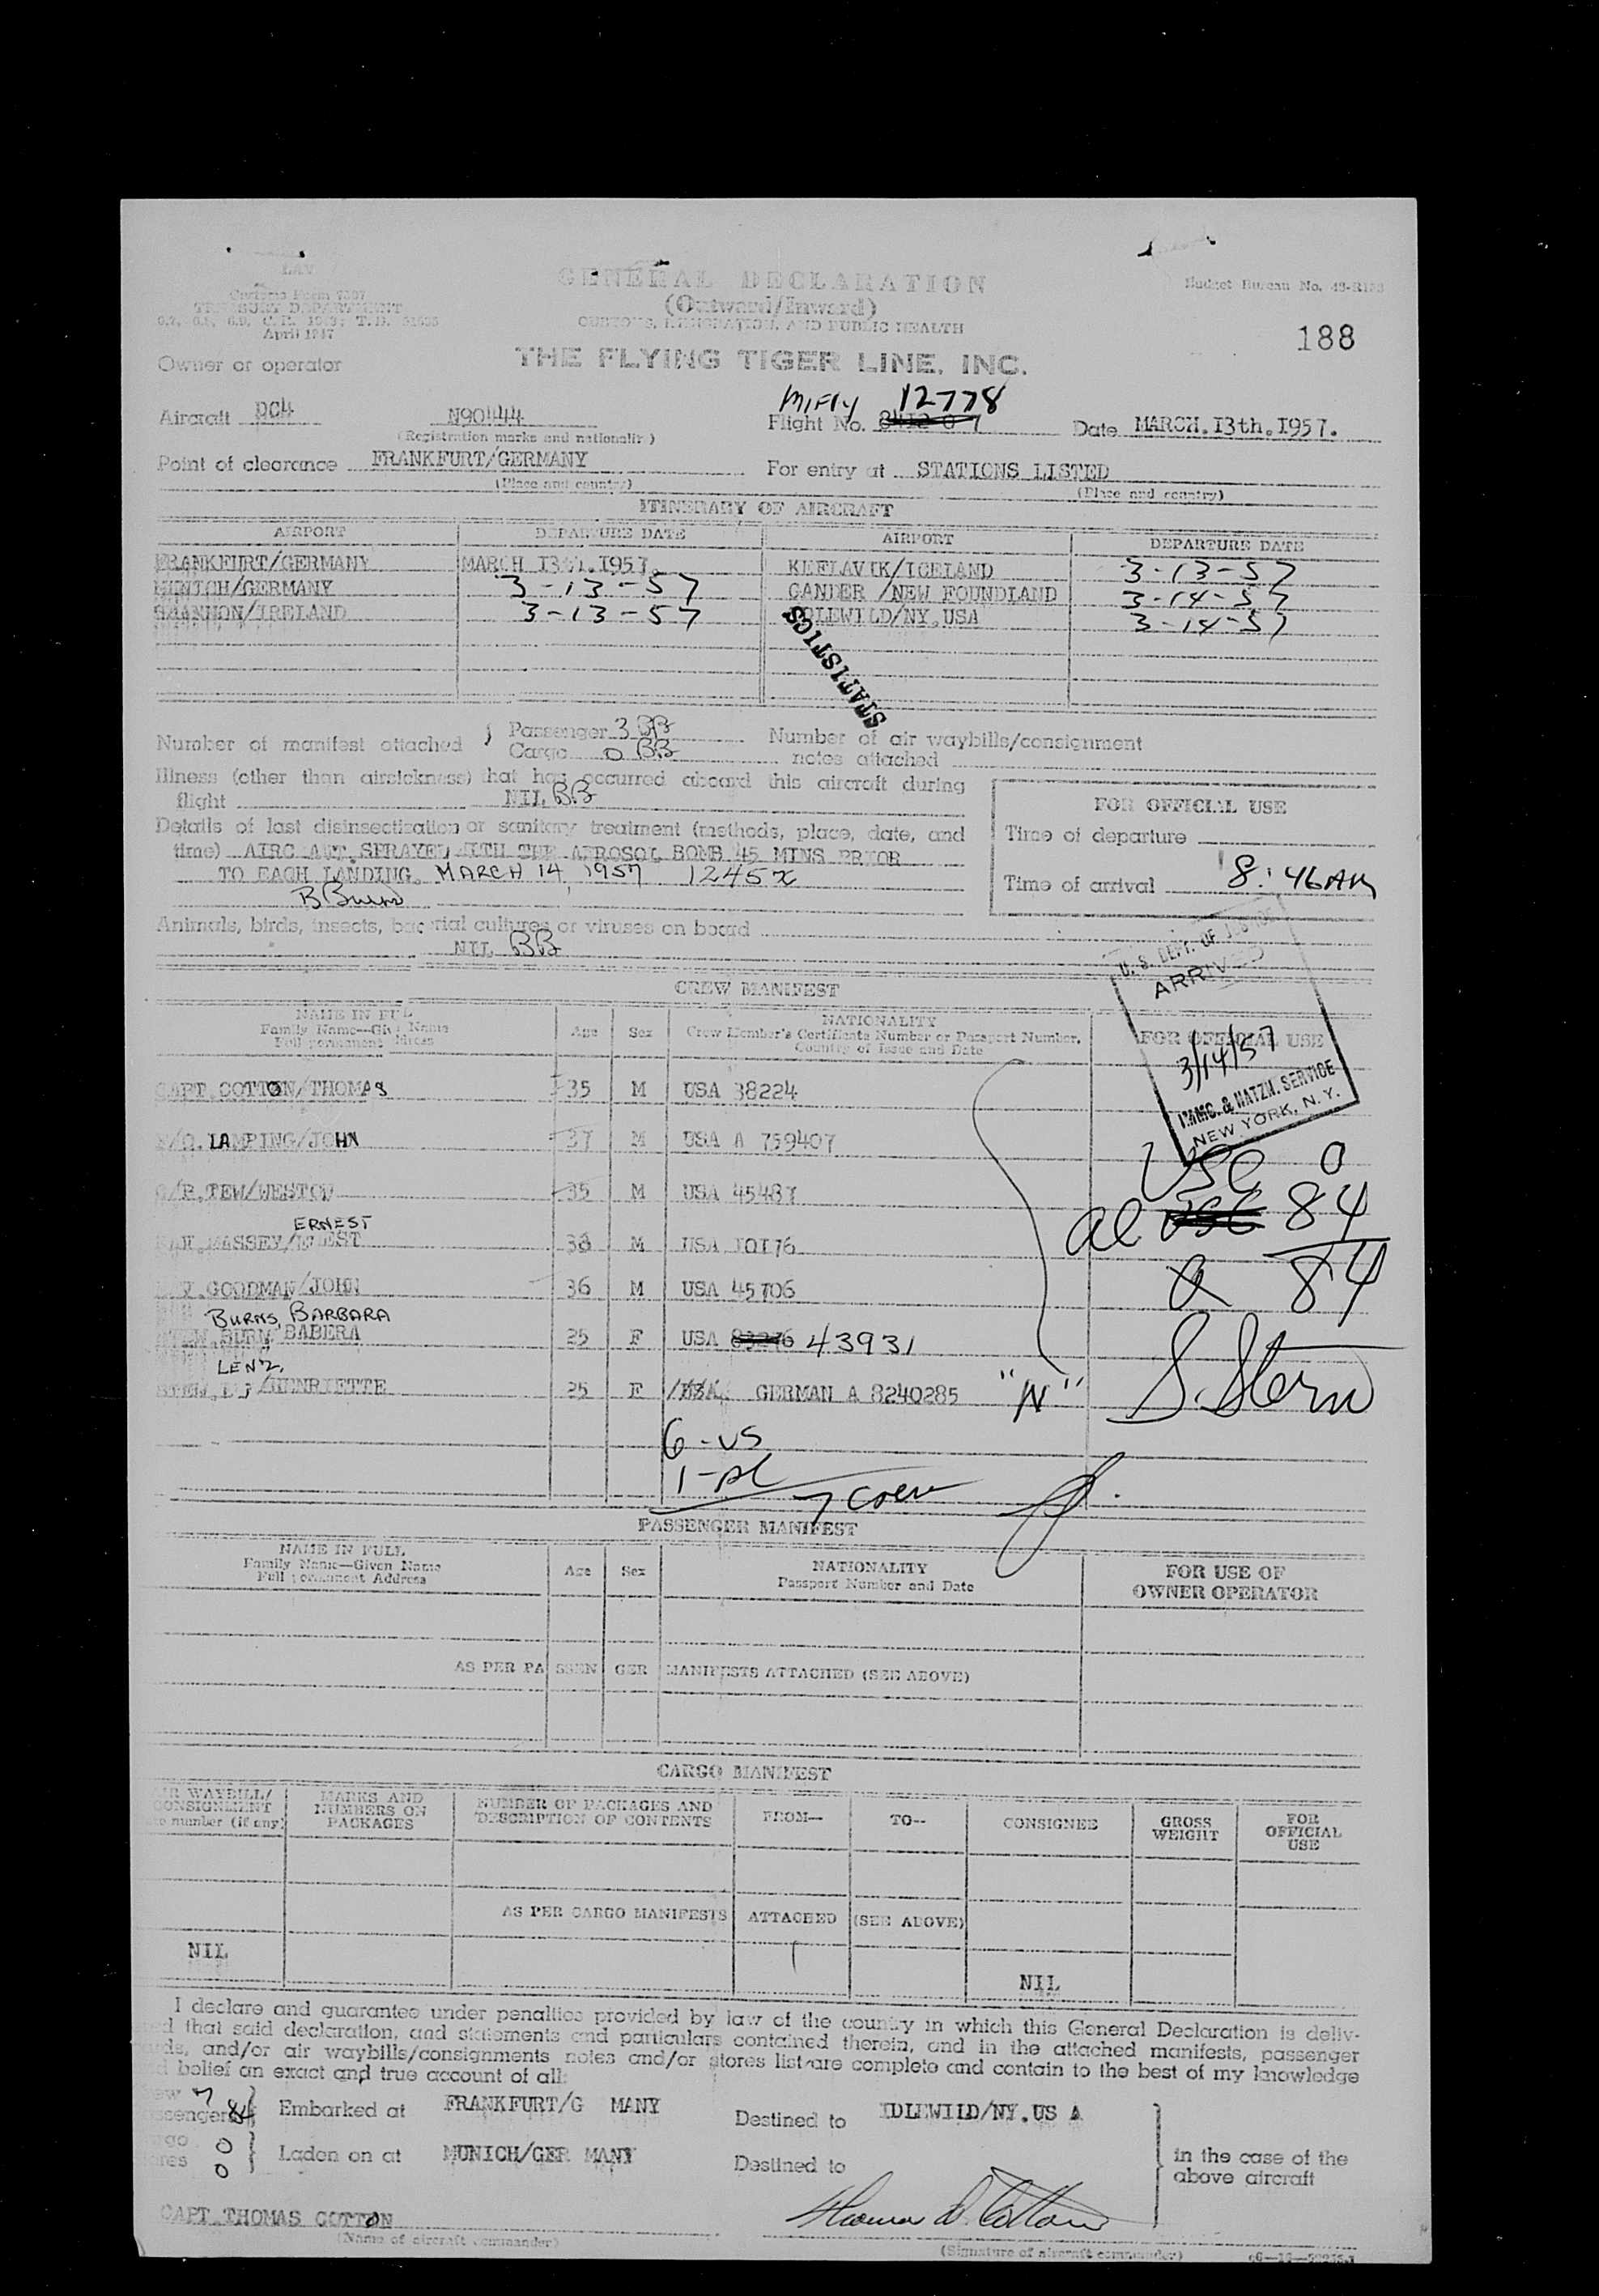 GENERAL DECLARATION
(Outward/Inward)
CUSTOMS, IMMIGRATION, AND PUBLIC HEALTH
Customs Form 7507
TREASURY DEPARTMENT
April 1947
Budget Bureau No.
188
Owner or operator THE FLYING TIGER LINE, INC.
Aircraft DC4 N90444 Flight No. 12778 Date MARCH.I3th.I957.
(Registration marks and nationality)
Point of clearance FRANKFURT/GERMANY For entry at STATIONS LISTED
(Place and country) (Place and country)
ITINERARY OF AIRCRAFT
AIRPORT DEPARTURE DATE AIRPORT DEPARTURE DATE
FRANKFURT/GERMANY MARCH I3th.I957. KEFLAVIK/ICELAND 3-13-57
MUNICH/GERMANY 3-13-57 GANDER /NEW FOUNDLAND 3-14-57
SHANNON/IRELAND 3-13-57 IDLEWILD/NY,USA 3-14-57
STATISTICS
Number of manifest attached } Passenger 3 BB Number of air waybills/consignment
Cargo 0 BB notes attached
Illness (other than airsickness) that has occurred aboard this aircraft during
flight NIL BB
FOR OFFICIAL USE
Details of last disinsectization or sanitary treatment (methods, place, date, and
Time of departure
time) AIRCRAFT. SPRAYED WITH THE AEROSOL BOMB 45 MINS PRIOR
TO EACH LANDING. MARCH 14, 1957 1245
Time of arrival 8:46AM
B Burns
Animals, birds, insects, bacterial cultures or viruses on board
NIL BB
U. S. DEPT. OF JUSTICE
ARRIVED
3/14/57
IMMG. & NATZN. SERVICE
NEW YORK, N. Y.
CREW MANIFEST
NAME IN FULL Age Sex NATIONALITY FOR OFFICIAL USE
Family Name—Given Name Crew Member's Certificate Number or Passport Number,
Full permanent Address Country of Issue and Date
CAPT. COTTON/THOMAS 35 M USA 38224
LAMPING/JOHN 37 M USA A 759407
USC 0
TEW/WESTON 35 M USA 45487
al 84
ERNEST
MASSEY/ 38 M USA I0I76
a 84
GOODMAN/JOHN 36 M USA 45706
BURNS, BARBARA
STEW. BURN BABERA 25 F USA 43931
LENZ,
STEW. /HENRIETTE 25 F GERMAN A 8240285 "N" S. Stern
6-US
1-al
7 crew
PASSENGER MANIFEST
NAME IN FULL Age Sex NATIONALITY FOR USE OF
Family Name—Given Name Passport Number and Date OWNER OPERATOR
Full permanent Address
AS PER PASSENGER MANIFESTS ATTACHED (SEE ABOVE)
CARGO MANIFEST
AIR WAYBILL/ MARKS AND NUMBER OF PACKAGES AND FROM— TO-- CONSIGNEE GROSS FOR
CONSIGNMENT NUMBERS ON DESCRIPTION OF CONTENTS WEIGHT OFFICIAL
number (if any) PACKAGES USE
AS PER CARGO MANIFESTS ATTACHED (SEE ABOVE)
NIL
NIL
I declare and guarantee under penalties provided by law of the country in which this General Declaration is deliv-
ed that said declaration, and statements and particulars contained therein, and in the attached manifests, passenger
ards, and/or air waybills/consignments notes and/or stores list are complete and contain to the best of my knowledge
d belief an exact and true account of all:
ew 7
ssengers 84 } Embarked at FRANKFURT/G MANY Destined to IDLEWILD/NY.US A
go 0
ores 0 } Laden on at MUNICH/GER MANY Destined to
in the case of the
above aircraft
CAPT THOMAS COTTON Thomas D. Cotton
(Name of aircraft commander) (Signature of aircraft commander)